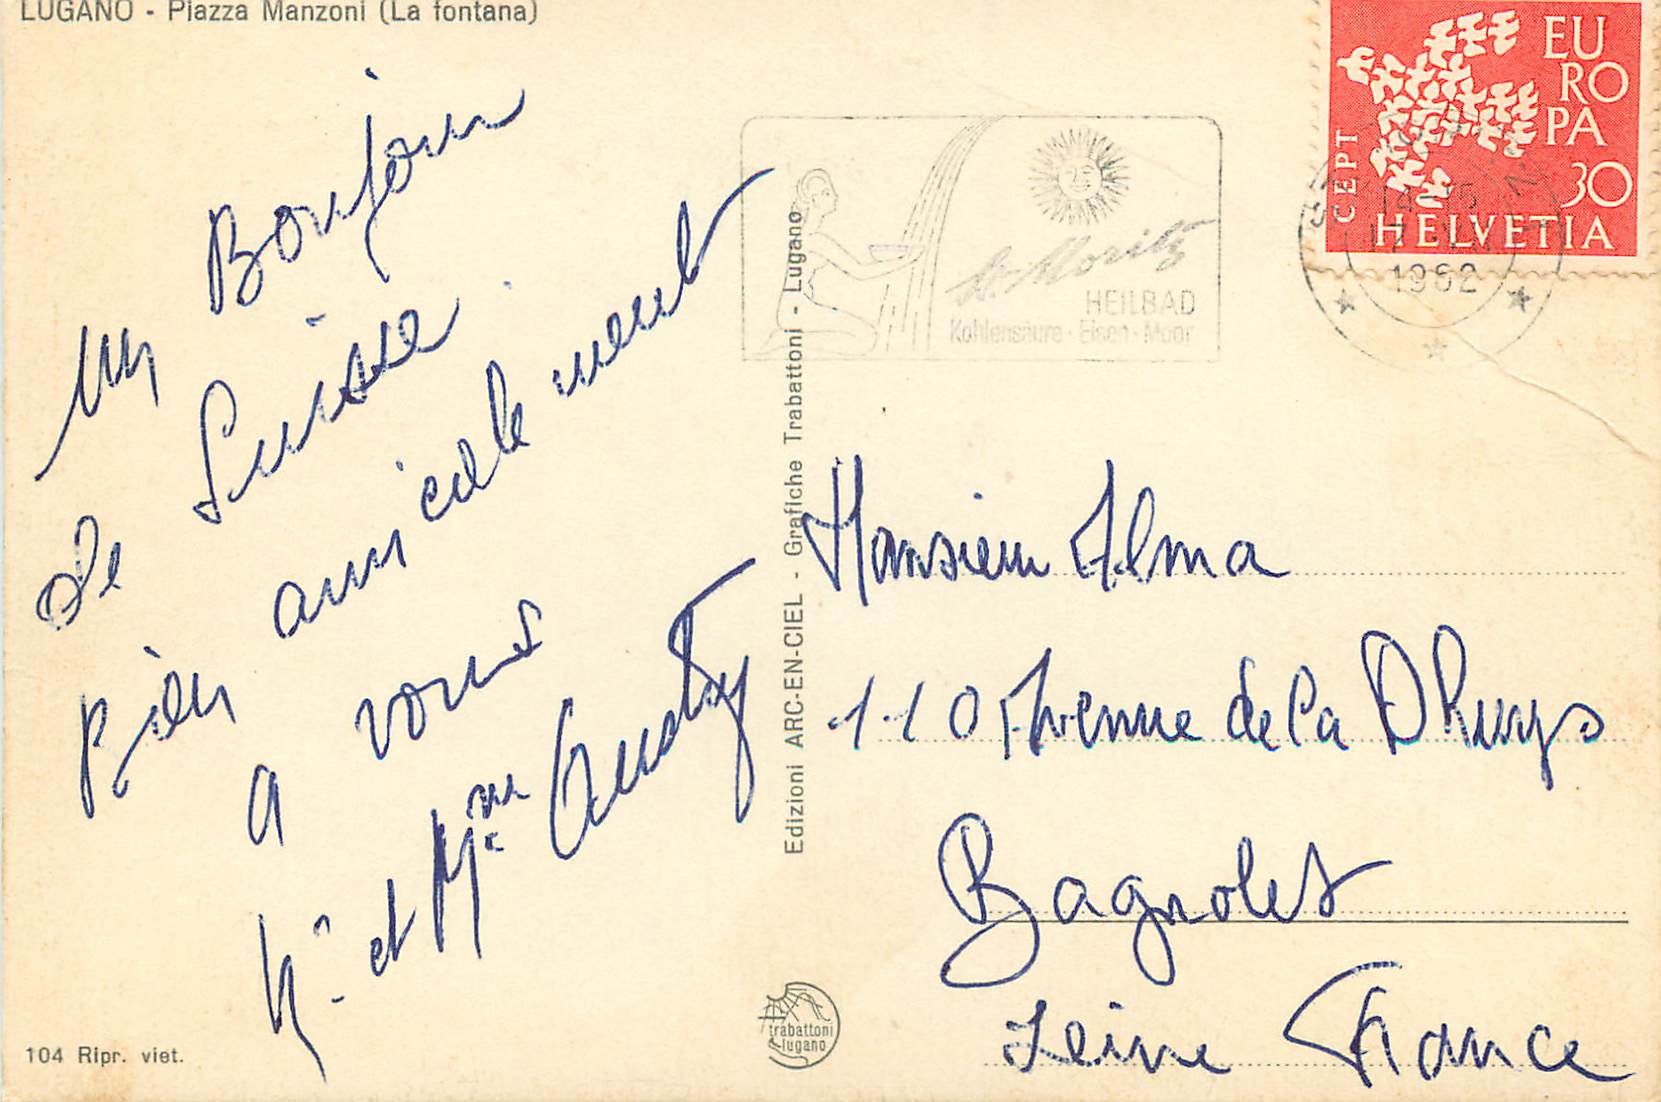 LUGANO - Piazza Manzoni (La fontana)
un Bonjour
de Suisse
Bien amicalement
a vous
Mr. et Mme
Edizioni ARC-EN-CIEL - Grafiche Trabattoni - Lugano
104 Ripr. viet.
trabattoni
lugano
St. Moritz
HEILBAD
Kohlensäure · Eisen · Moor
EU
RO
PA
CEPT
30
HELVETIA
1962
Monsieur Alma
110 Avenue de la Dhuys
Bagnolet
Seine France